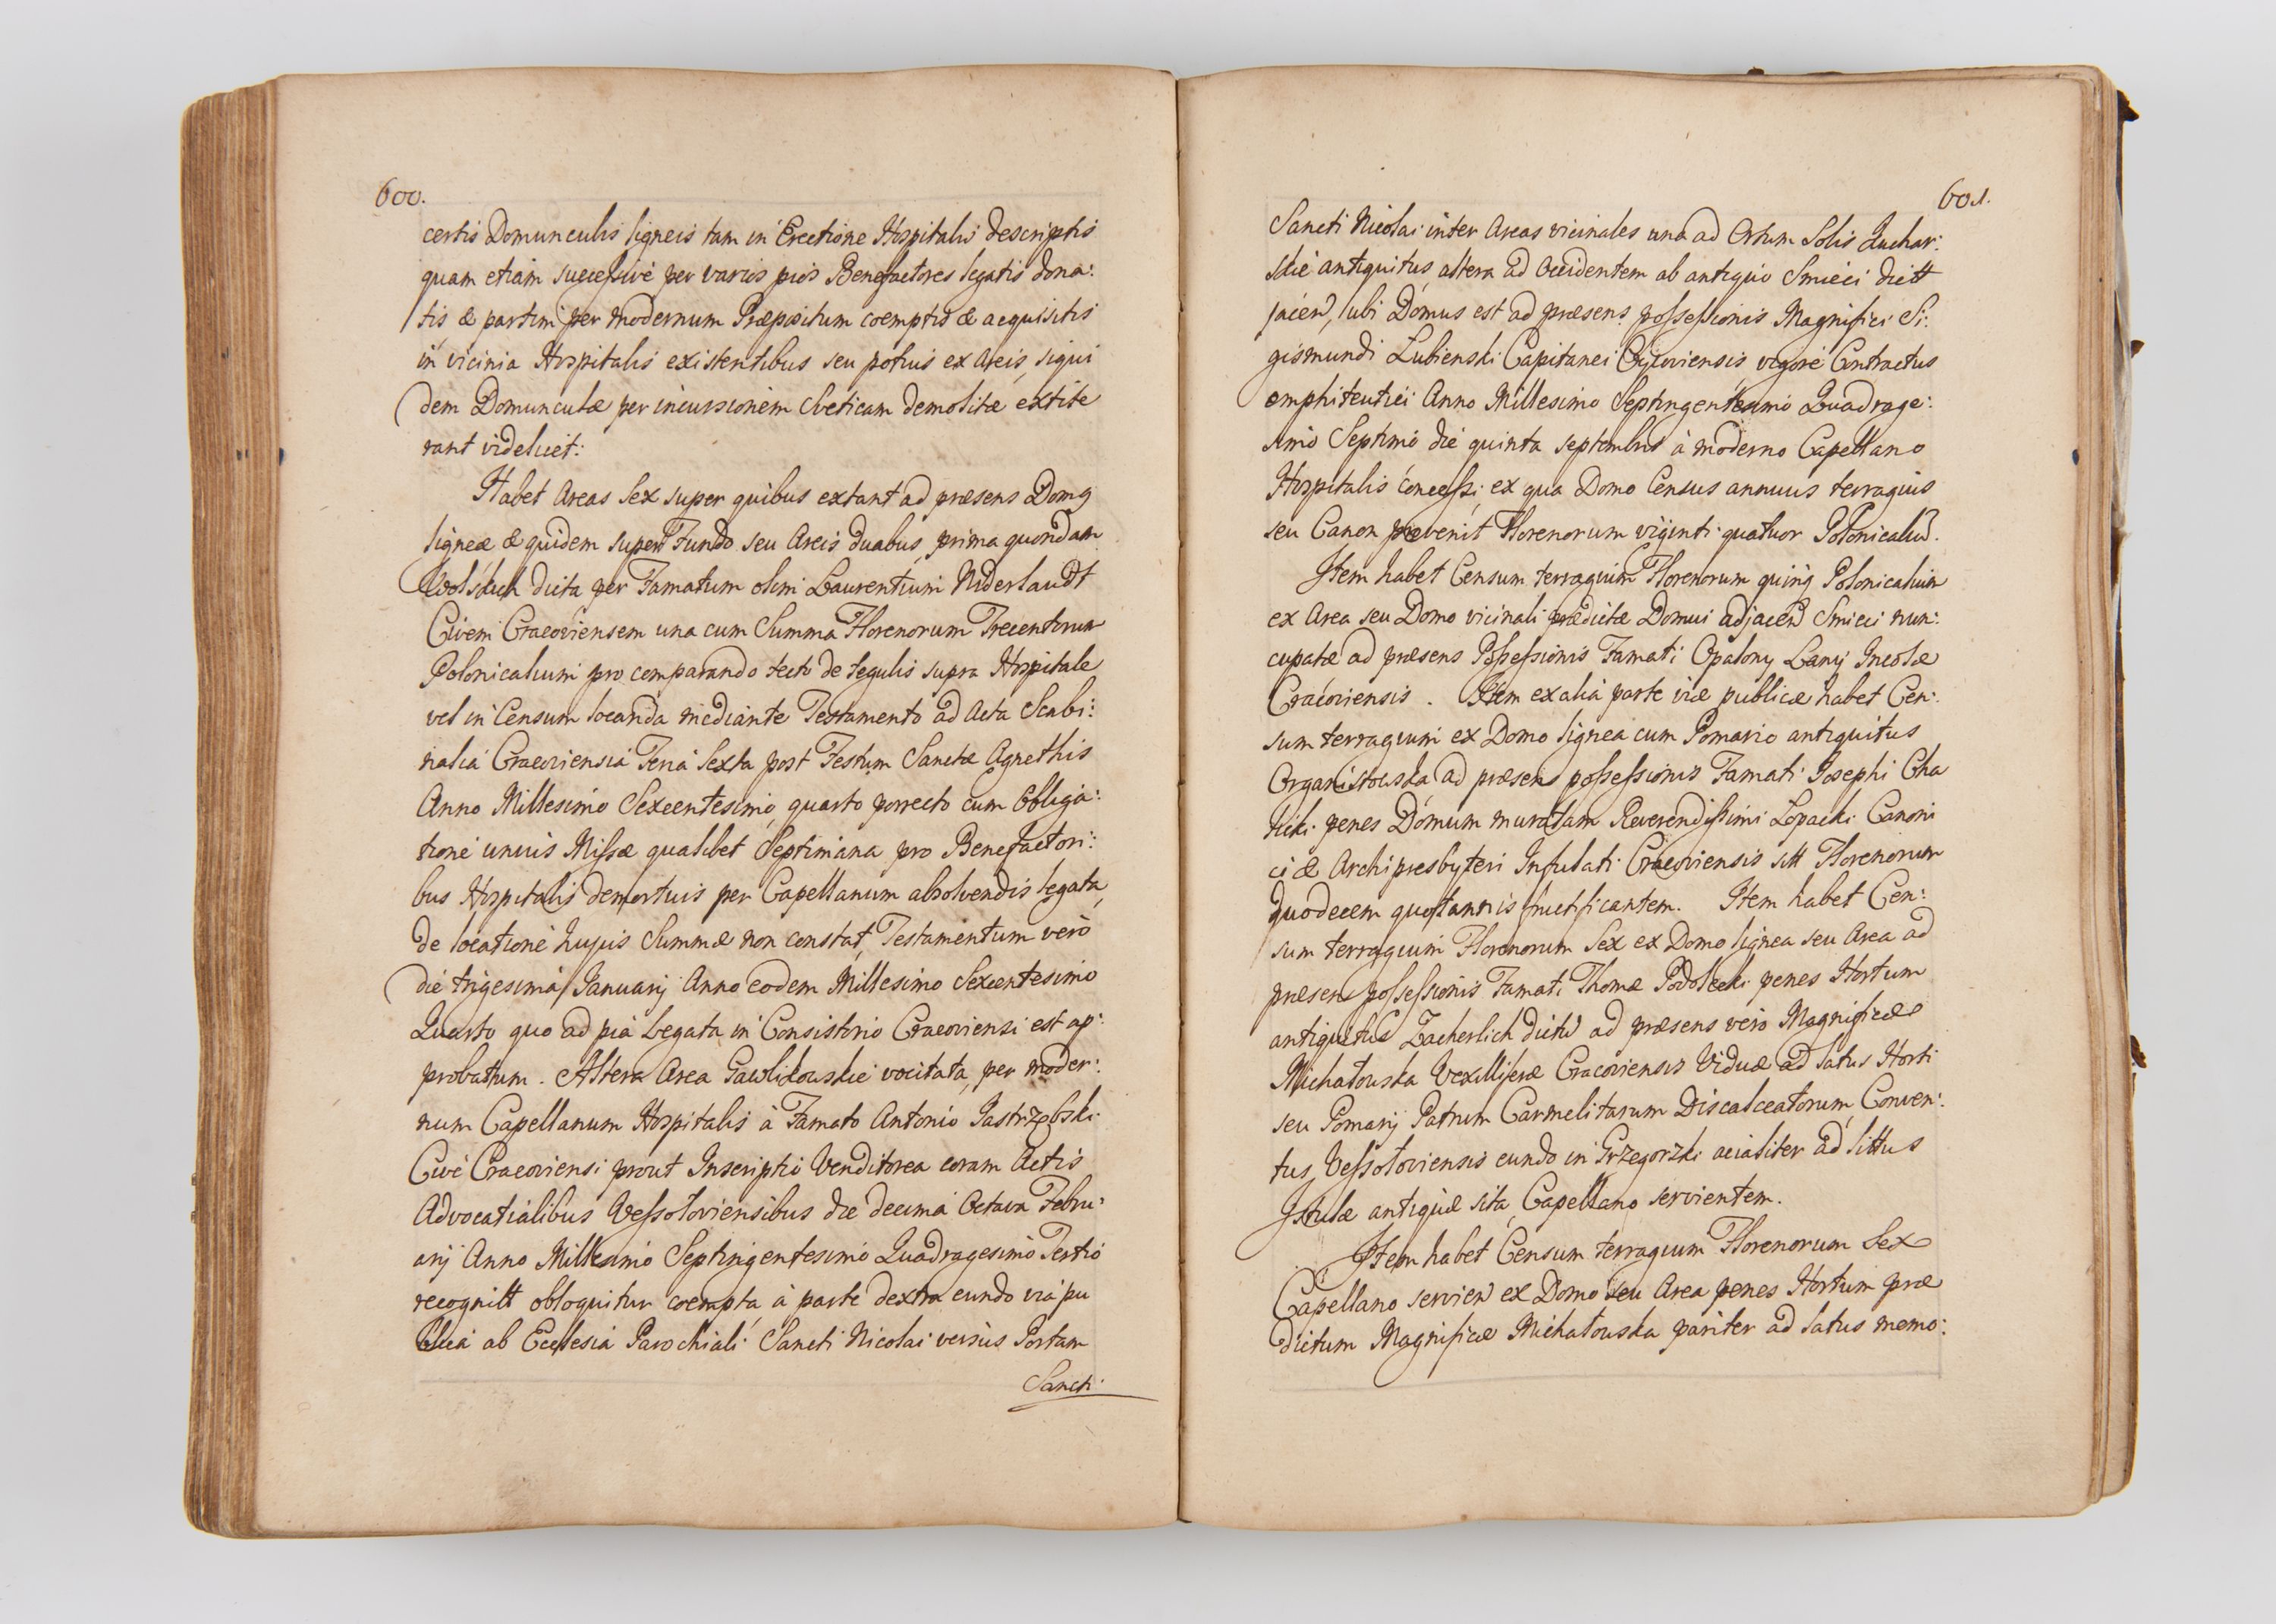 600.
certis Domunculis ligneis tam in Erectione Hospitalis descriptis
quam etiam successivè per varios pios Benefactores legatis dona:
tis & partim per modernum Præpositum coemptis & acquisitis
in vicinia Hospitalis existentibus seu potius ex Areis, siqui
dem Domunculæ per incursionem Sveticam demolitæ extite
rant videlicet:
Habet Areas Sex super quibus extant ad præsens Domg
ligneæ & quidem super Fundo seu Areis duabus, prima quondam
dicta per Famatum olim Laurentium Niderlandt
Civem Cracoviensem una cum Summa Florenorum Trecentorum
Polonicalium pro comparando tecto de tegulis supra Hospitale
vel in Censum locanda mediante Testamento ad Acta Scabi:
nalia Cracoviensia Feria Sexta post Festum Sanctæ Agnethis
Anno Millesimo Sexcentesimo, quarto porrecto cum Obliga:
tione unius Missæ qualibet Septimana pro Benefactori:
bus Hospitalis demortuis per Capellanum absolvendis legata,
de locatione hujus Summæ non constat, Testamentum verò
die trigesima Januarij Anno eodem Millesimo Sexcentesimo
Quarto quo ad pia Legata in Consistorio Cracoviensi est ap:
probatum. Altera Area Gawlikowskie vocitata, per moder:
num Capellanum Hospitalis à Famato Antonio Jastrzębski
Cive Cracoviensi prout Inscriptio Venditorea coram Actis
Advocatialibus Vessołoviensibus die decima Octava Febru:
arij Anno Millesimo Septingentesimo Quadragesimo Tertio
recognitt obloquitur coempta, à parte dextra eundo via pu
blica ab Ecclesia Parochiali Sancti Nicolai versus Portam
Sancti
601.
Sancti Nicolai inter Areas vicinales una ad Ortum Solis Kuchar:
skie antiquitus, altera ad Occidentem ab antiquo Smieci dictt
jacen, ubi Domus est ad præsens possessionis Magnifici Si:
gismundi Lubienski Capitanei Oycoviensis vigore Contractus
emphiteutici Anno Millesimo Septingentesimo Quadrage:
simo Septimo die quinta septembris à moderno Capellano
Hospitalis concessi, ex qua Domo Census annuus terragius
seu Canon provenit Florenorum viginti quatuor Polonicaliu.
Item habet Censum terragium Florenorum quinq Polonicalium
ex Area seu Domo vicinali prædictæ Domui adjacen Smieci nun:
cupatæ ad præsens Possessionis Famati Opalony Lanij Incolæ
Cracoviensis. Item ex alia parte viæ publicæ habet Cen:
sum terragium ex Domo lignea cum Pomario antiquitus
Organistowska, ad præsens possessionis Famati Josephi Cha
penes Domum muratam Reverendissimi Łopacki Canoni
ci & Archipresbyteri Infulati Cracoviensis sitt Florenorum
duodecem quotannis fructificantem. Item habet Cen:
sum terragium Florenorum Sex ex Domo lignea seu Area ad
præsens possessionis Famati Thomæ Podolecki penes Hortum
antiquitus Zacherlich dictu ad præsens vero Magnificæ
Michałouska Vexilliferæ Cracoviensis Viduæ ad latus Horti
seu Pomarij Patrum Carmelitarum Discalceatorum, Conven:
tus Vessołoviensis eundo in Grzegorzki acialiter ad littus
Istulæ antiquæ sita, Capellano servientem.
Item habet Censum terragium Florenorum Sex
Capellano servien ex Domo seu Area penes Hortum præ
dictum Magnificæ Michałouska pariter ad latus memo: